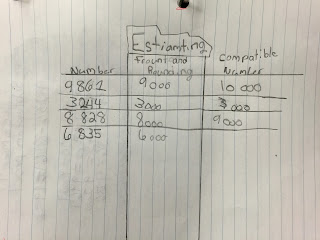 Estiamting
Number Rounding Compatible Number
9 861 9000 10 000
3244 3000 3 000
8 828 8000 9 000
6 835 6000